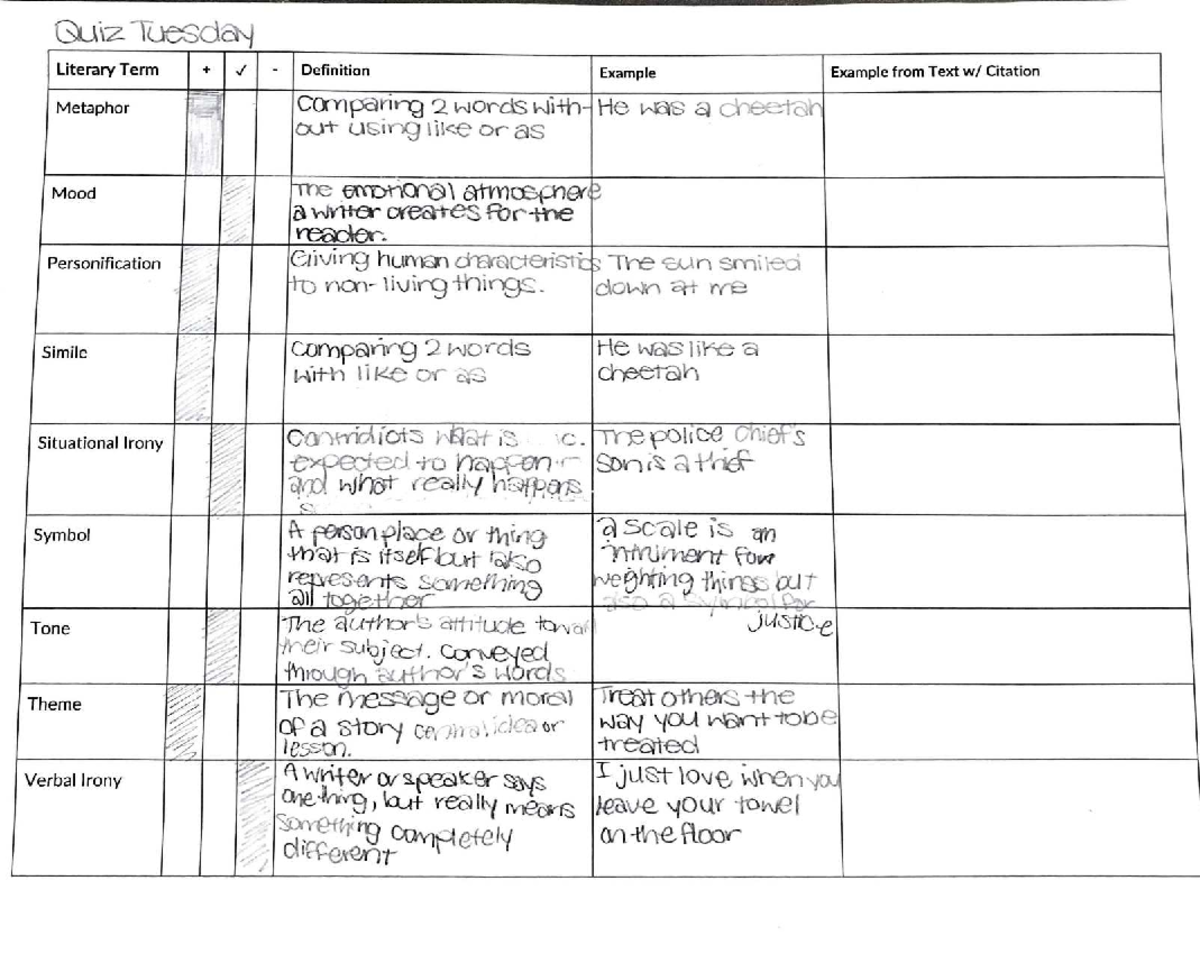 Quiz Tuesday
Literary Term + ✓ - Definition Example Example from Text w/ Citation
Metaphor
Comparing 2 words with-
out using like or as
He was a cheetah
Mood
The emotional atmosphere
a writer creates for the
reader.
Personification
Giving human characteristics
to non-living things.
The sun smiled
down at me
Simile
Comparing 2 words
with like or as
He was like a
cheetah
Situational Irony
Contridicts what is
expected to happen
and what really happens
The police chief's
son is a thief
Symbol
A person place or thing
that is itself but also
represents something
all together
a scale is an
intriment for
weighting things but
also a symbol for
justice
Tone
The author's attitude towar
their subject. Conveyed
through author's words
Theme
The message or moral
of a story central idea or
lesson.
Treat others the
way you want to be
treated
Verbal Irony
A writer or speaker says
one thing, but really means
something completely
different
I just love when you
leave your towel
on the floor